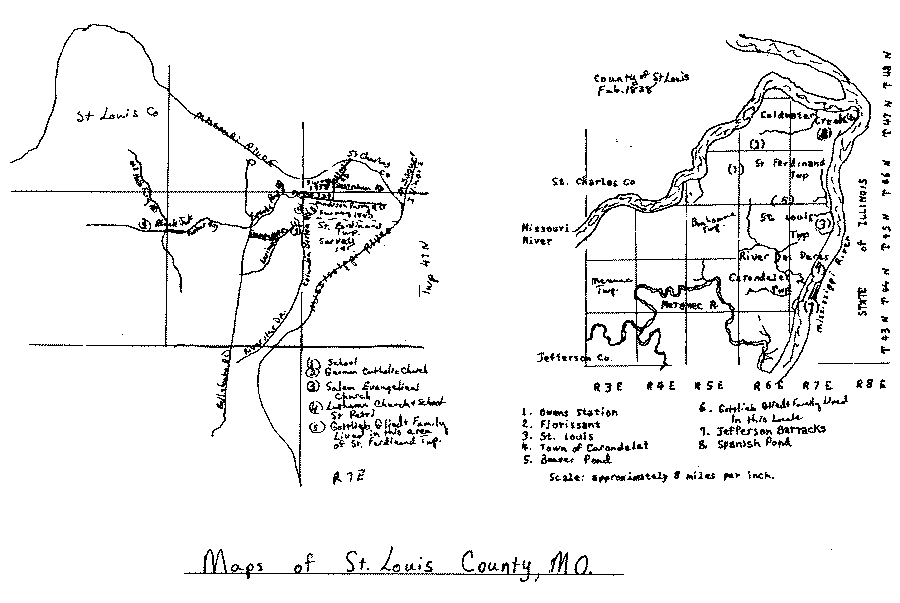 St Louis Co
St Charles
Co
Missouri River
Mississippi River
St. Ferdinand
Twp.
Twp 47 N
(1) School
(2) German Catholic Church
(3) Salem Evangelical
Church
(4) Lutheran Church & School
St Petri
(5) Gottlieb Offiedt Family
Lived in this area
of St. Ferdinand Twp.
R 7 E
County of St Louis
Feb. 1828
Coldwater
Creek
(8)
(2)
(1)
St Ferdinand
Twp
St. Charles Co
(5)
Missouri
River
Bonhomme
Twp.
St. Louis
Twp
(3)
River Des Peres
Carondelet
Twp
Meramec R.
Mississippi River
STATE of ILLINOIS
T 43 N T 44 N T 45 N T 46 N T 47 N T 48 N
Jefferson Co.
R 3 E R 4 E R 5 E R 6 E R 7 E R 8 E
1. Owens Station
2. Florissant
3. St. Louis
4. Town of Carondelet
5. Beaver Pond
6. Gottlieb Offiedt Family Lived
In this Locale
7. Jefferson Barracks
8. Spanish Pond
Scale: approximately 8 miles per inch.
Maps of St. Louis County, MO.